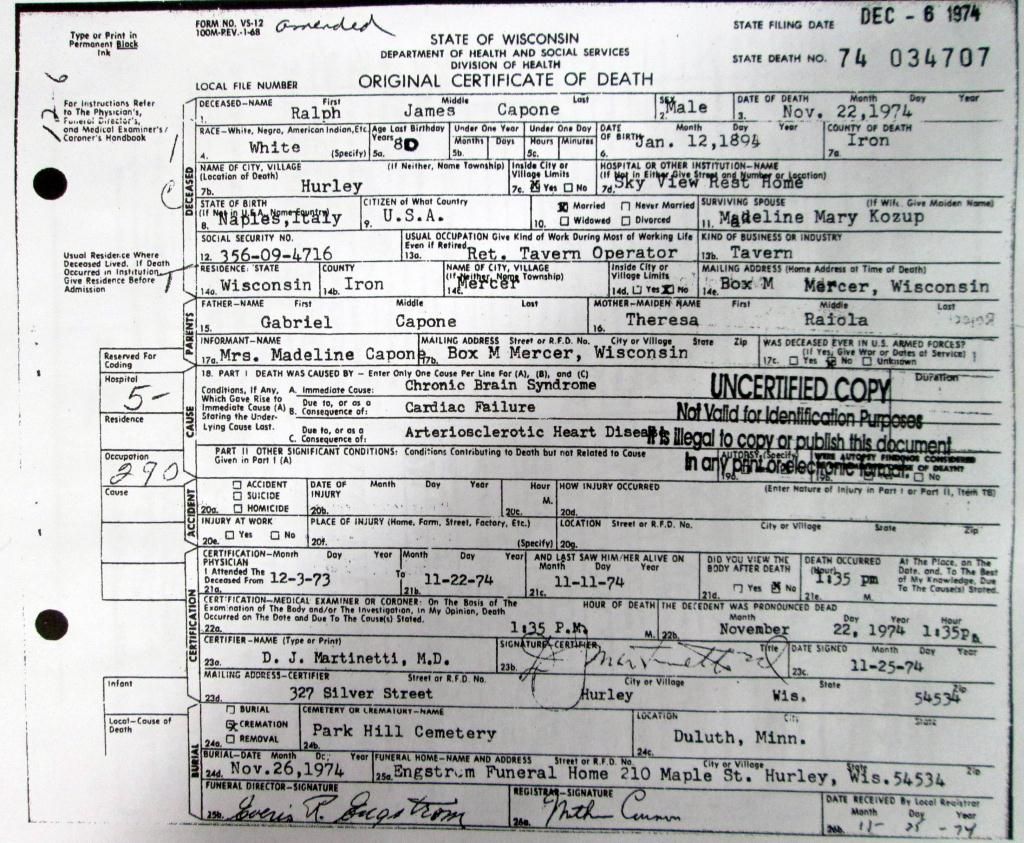 Type or Print in
Permanent Black
Ink
FORM NO. VS-12
100M-REV.-1-68
amended
STATE OF WISCONSIN
DEPARTMENT OF HEALTH AND SOCIAL SERVICES
DIVISION OF HEALTH
ORIGINAL CERTIFICATE OF DEATH
STATE FILING DATE DEC - 6 1974
STATE DEATH NO. 74 034707
LOCAL FILE NUMBER
12-6
For Instructions Refer
to The Physician's,
Funeral Director's,
and Medical Examiner's/
Coroner's Handbook
DECEASED
DECEASED-NAME First Middle Last
1. Ralph James Capone
SEX
2. Male
DATE OF DEATH Month Day Year
3. Nov. 22,1974
RACE-White, Negro, American Indian,Etc.
4. White (Specify)
Age Last Birthday
Years
5a. 80
Under One Year
Months Days
5b.
Under One Day
Hours Minutes
5c.
DATE OF BIRTH Month Day Year
6. Jan. 12,1894
COUNTY OF DEATH
7a. Iron
NAME OF CITY, VILLAGE (If Neither, Name Township)
(Location of Death)
7b. Hurley
Inside City or
Village Limits
7c. X Yes No
HOSPITAL OR OTHER INSTITUTION-NAME
(If Not in Either Give Street and Number or Location)
7d. Sky View Rest Home
STATE OF BIRTH
(If Not in U.S.A. Name Country)
8. Naples,Italy
CITIZEN of What Country
9. U.S.A.
10. X Married Never Married
Widowed Divorced
SURVIVING SPOUSE (If Wife, Give Maiden Name)
11. Madeline Mary Kozup
Usual Residence Where
Deceased Lived. If Death
Occurred in Institution,
Give Residence Before
Admission
SOCIAL SECURITY NO.
12. 356-09-4716
USUAL OCCUPATION Give Kind of Work During Most of Working Life
Even if Retired
13a. Ret. Tavern Operator
KIND OF BUSINESS OR INDUSTRY
13b. Tavern
RESIDENCE: STATE
14a. Wisconsin
COUNTY
14b. Iron
NAME OF CITY, VILLAGE
(If Neither, Name Township)
14c. Mercer
Inside City or
Village Limits
14d. Yes X No
MAILING ADDRESS (Home Address at Time of Death)
14e. Box M Mercer, Wisconsin
PARENTS
FATHER-NAME First Middle Last
15. Gabriel Capone
MOTHER-MAIDEN NAME First Middle Last
16. Theresa Raiola
INFORMANT-NAME
17a. Mrs. Madeline Capone
MAILING ADDRESS Street or R.F.D. No. City or Village State Zip
17b. Box M Mercer, Wisconsin
WAS DECEASED EVER IN U.S. ARMED FORCES?
(If Yes, Give War or Dates of Service)
17c. Yes X No Unknown
Reserved For
Coding
Hospital
5-
Residence
Occupation
290
Cause
CAUSE
18. PART I DEATH WAS CAUSED BY - Enter Only One Cause Per Line For (A), (B), and (C)
Duration
Conditions, If Any,
Which Gave Rise to
Immediate Cause (A)
Stating the Under-
Lying Cause Last.
A. Immediate Cause: Chronic Brain Syndrome
B. Due to, or as a
Consequence of: Cardiac Failure
C. Due to, or as a
Consequence of: Arteriosclerotic Heart Disease
UNCERTIFIED COPY
Not Valid for Identification Purposes
It is illegal to copy or publish this document
in any print or electronic format.
PART II OTHER SIGNIFICANT CONDITIONS: Conditions Contributing to Death but not Related to Cause
Given in Part I (A)
AUTOPSY (Specify)
19a.
WERE AUTOPSY FINDINGS CONSIDERED
OF DEATH?
19b. Yes No
ACCIDENT
20a. ACCIDENT
SUICIDE
HOMICIDE
DATE OF INJURY Month Day Year
20b.
Hour
20c. M.
HOW INJURY OCCURRED (Enter Nature of Injury in Part I or Part II, Item 18)
20d.
INJURY AT WORK
20e. Yes No
PLACE OF INJURY (Home, Farm, Street, Factory, Etc.)
20f. (Specify)
LOCATION Street or R.F.D. No. City or Village State Zip
20g.
CERTIFICATION
CERTIFICATION-Month Day Year
PHYSICIAN
I Attended The
Deceased From
21a. 12-3-73
To Month Day Year
21b. 11-22-74
AND LAST SAW HIM/HER ALIVE ON
Month Day Year
21c. 11-11-74
DID YOU VIEW THE
BODY AFTER DEATH
21d. Yes X No
DEATH OCCURRED
(Hour)
21e. 1:35 pm M.
At The Place, on The
Date, and, To The Best
of My Knowledge, Due
To The Cause(s) Stated.
CERTIFICATION-MEDICAL EXAMINER OR CORONER: On The Basis of The
Examination of The Body and/or The Investigation, in My Opinion, Death
Occurred on The Date and Due To The Cause(s) Stated.
22a.
HOUR OF DEATH
1:35 P.M. M.
THE DECEDENT WAS PRONOUNCED DEAD
Month Day Year Hour
22b. November 22, 1974 1:35Pm
CERTIFIER-NAME (Type or Print)
23a. D. J. Martinetti, M.D.
SIGNATURE-CERTIFIER Title
23b. Martinetti
DATE SIGNED Month Day Year
23c. 11-25-74
MAILING ADDRESS-CERTIFIER Street or R.F.D. No. City or Village State Zip
23d. 327 Silver Street Hurley Wis. 54534
Infant
Local-Cause of
Death
BURIAL
24a. BURIAL
X CREMATION
REMOVAL
CEMETERY OR CREMATORY-NAME
24b. Park Hill Cemetery
LOCATION City State
24c. Duluth, Minn.
BURIAL-DATE Month Day Year
24d. Nov.26,1974
FUNERAL HOME-NAME AND ADDRESS Street or R.F.D. No. City or Village State Zip
25a. Engstrom Funeral Home 210 Maple St. Hurley, Wis.54534
FUNERAL DIRECTOR-SIGNATURE
25b. Engstrom
REGISTRAR-SIGNATURE
26a.
DATE RECEIVED By Local Registrar
Month Day Year
26b. 11-25-74